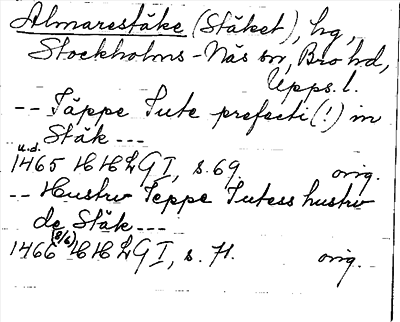 Almarestäke (Stäket), hg,
Stockholms-Näs sn, Bro hd,
Upps. l.
-- Täppe Tute prefecti (!) in
Stäk ---
u.d.
1465 HHLG I, s. 69. orig.
-- Hustrv Teppe Tutess hustrv
de Stäk ---
(8/6)
1466 HHLG I, s. 71. orig.